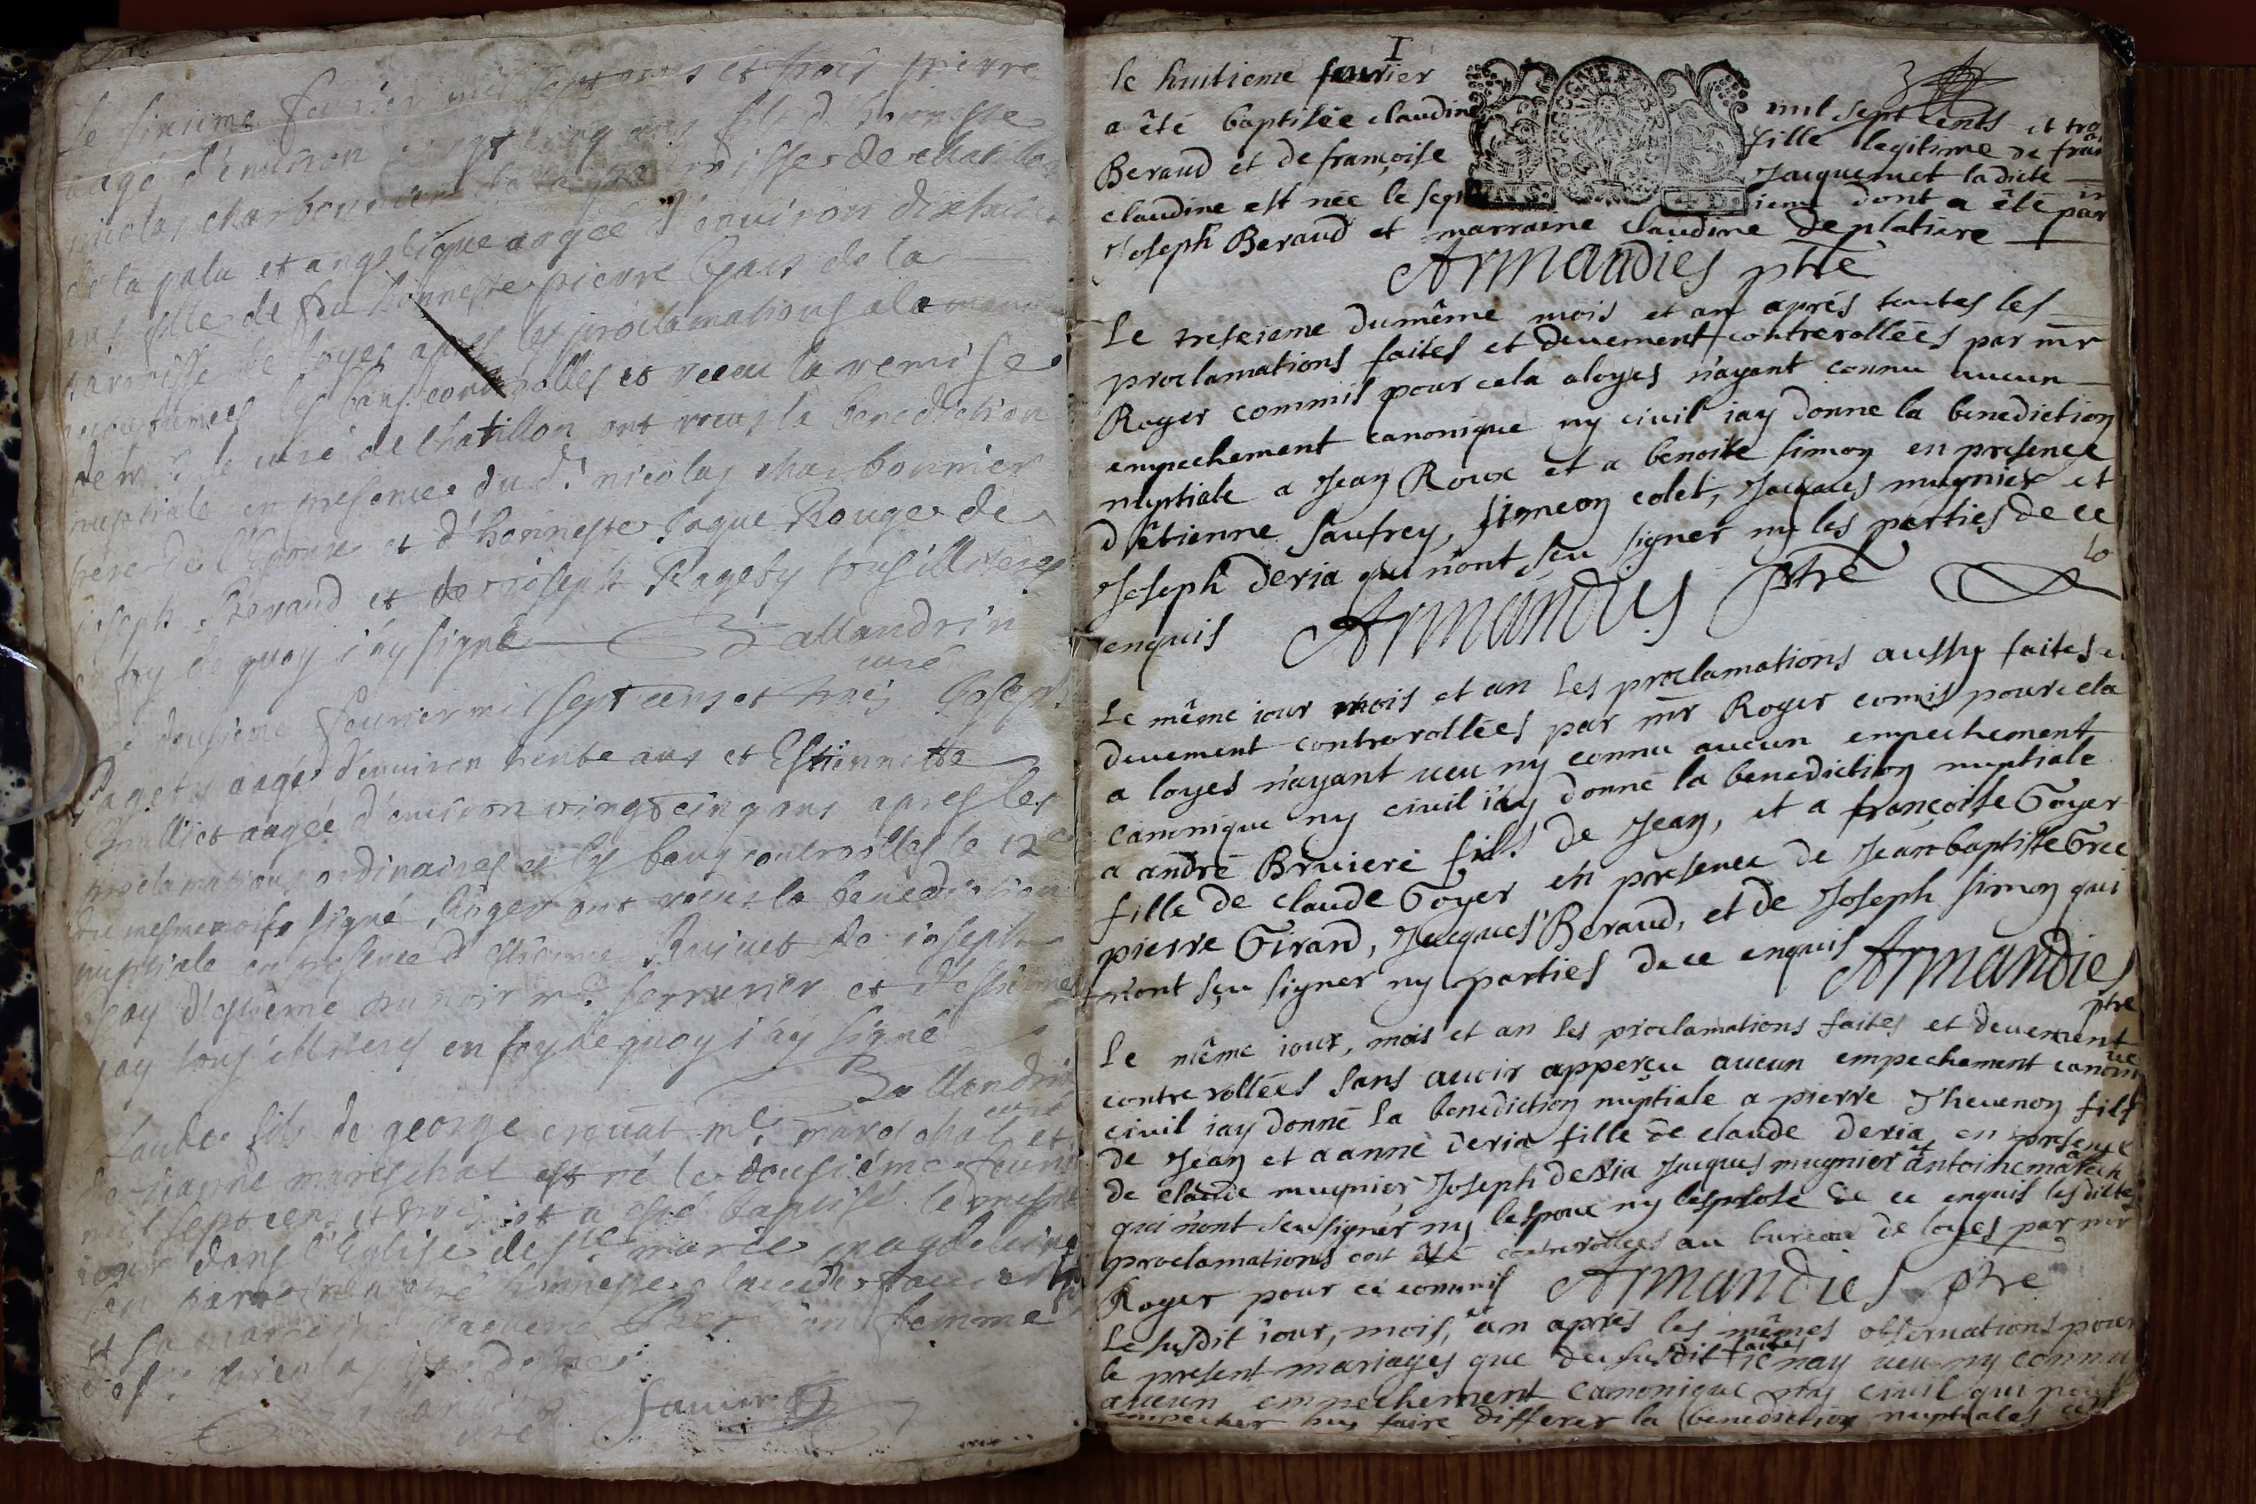 le sixieme feurier mil sept cens et trois pierre
aagé d'environ vingt cinq ans fils d. honneste
nicolas charbonnier de la parroisse de chatillon
de la palu et angelique aagée d'environ dixhuict
ans fille de feu honneste pierre de la
parroisse de loyes apres les proclamations a la maniere
accoutumées les bans controlles et receu la remise
de mr le curé de chatillon ont receus la benediction
nuptiale en presence du dt nicolas charbonnier
pere de l'epoux et d'honneste Rouge de
joseph Beraud et de joseph Ragety tous illiteres
en foy de quoy j'ay signé allandrin
curé
le dousieme feurier mil sept cens et trois Joseph
Ragety aagé d'environ trente ans et Estiennette
aagée d'environ vingt cinq ans apres les
proclamations ordinaires et les bans controlles le 12e
du mesme mois signé, Roger ont receus la benediction
nuptiale en presence d'estienne de joseph
d'estienne mr serrurier et d'estienne
tous illiteres en foy de quoy j'ay signé
allandrin
curé
Claude fils de george crouat mr mareschal et
de mareschal est né le dousiéme feurier
mil sept cens et trois et a esté baptisé le mesme
jour dans l'Eglise de ste marie magdeleine
son parrain a esté honneste claude
et sa marraine femme
curé
I
3
le huitieme feurier mil sept cents et trois
a êté baptisée claudine fille legitime de fran
Beraud et de françoise Jacquemet ladicte
claudine est née le sept ieme dont a êté par
Joseph Beraud et marraine claudine deplatiere
Armandies ptre
Le treseieme du même mois et an aprés toutes les
proclamations faites et deuement controrollées par mr
Roger commis pour cela a loyes n'ayant connu aucun
empechement canonique ny civil iay donne la benediction
nuptiale a Jean Roux et a benoite simon en presence
d'êtienne saufrey, simeon colet, Jacques mugnier et
Joseph deria qui n'ont seu signer ny les parties de ce
enquis Armandies ptre
Le même iour mois et an les proclamations aussy faites et
deuement controrollées par mr Roger comis pour cela
a loyes n'ayant ueu ny connu aucun empechement
canonique ny civil i'ay donné la benediction nuptiale
a andré Bruiere fils de Jean, et a françoise Goyer
fille de claude Goyer en presence de Jean baptiste
pierre Girard, Jacques Beraud, et de Joseph simon qui
n'ont sçu signer ny parties de ce enquis Armandies
ptre
Le même iour, mois et an les proclamations faites et deuement
controrollées sans auoir apperçu aucun empechement canonique
civil iay donné la benediction nuptiale a pierre Theuenon fils
de Jean et a anne deria fille de claude deria en presence
de claude mugnier Joseph deria Jacques mugnier et antoine marech
qui n'ont seu signer ny lespoux ny lespouse de ce enquis lesdites
proclamations ont été controrollées au bureau de loyes par mr
Roger pour ce commis Armandies ptre
Le susdit iour, mois, et an aprés les mêmes obseruations pour
le present mariages que du susdit faites ie nay ueu ny connu
aucun empechement canonique ny civil qui peut
empecher ny faire differer la benediction nuptiales